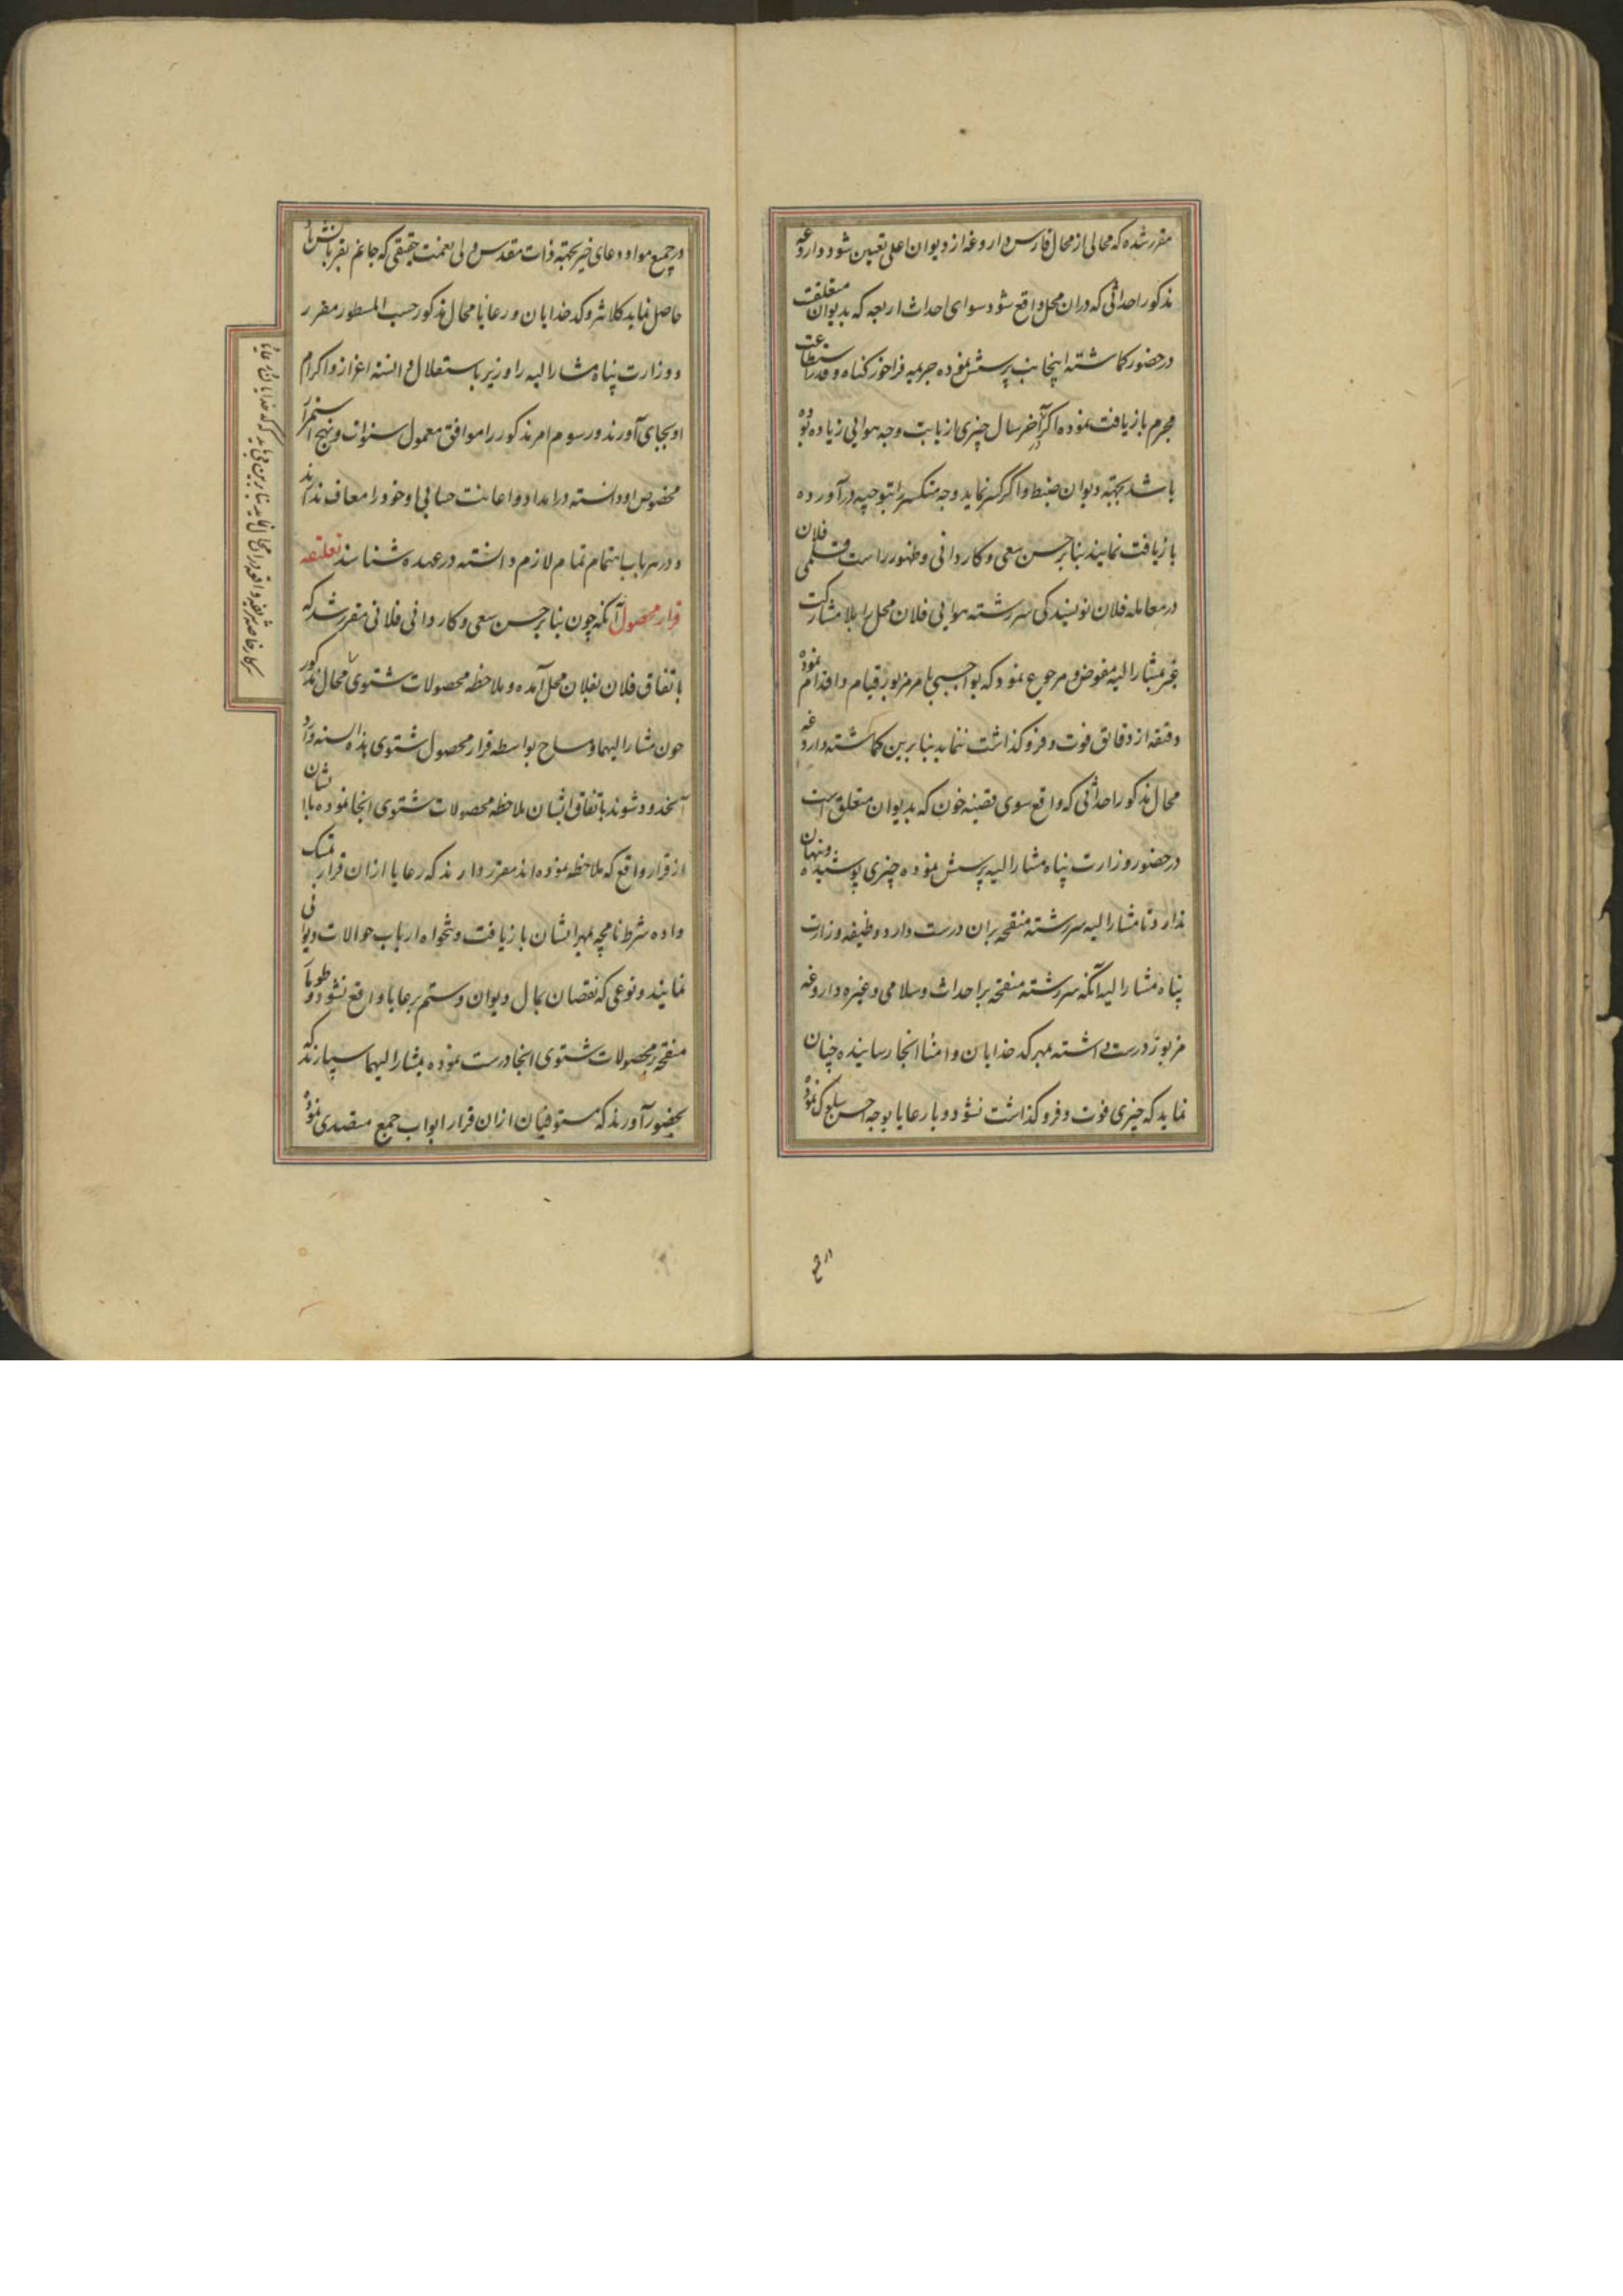 مقرر شده که محالی از محال فارس داروغه از دیوان اعلی تعیین شود و داروغه
مذکور احداثی که در ان محل واقع شود سوای احداث اربعه که بدیوان متعلقست
در حضور کماشته اینجانب پرسش نموده جریمه فراخور کناه و قدر استطاعت
مجرم بازیافت نموده اکر در آخر سال چیزی از بابت وجه هوایی زیاده بوده
باشد بجهته دیوان ضبط و اکر کسر نماید وجه منکسر را بتوجیه در آورده
بازیافت نمایند بنابر حسن سعی و کاردانی و ظهور راست قلمی فلان
در معامله فلان نویسندکی سررشته هوایی فلان محل را بلا مشارکت
غیر بمشار الیه مفوض و مرجوع نمود که بواجبی بامر مزبور قیام و اقدام نموده
دقیقه از دقائق فوت و فروکذاشت ننماید بنابرین کماشته داروغه
محال مذکور احداثی که واقع سوی قضیه خون که بدیوان متعلق است
در حضور وزارت پناه مشار الیه پرسش نموده چیزی پوشیده و پنهان
ندارد تا مشار الیه سررشته منقحه بران درست دارد و وظیفه وزارت
پناه مشار الیه آنکه سررشته منقحه بر احداث و سلامی و غیره داروغه
مزبور درست داشته بمهر کدخدایان و امنا انجا رسانیده چنان
نماید که چیزی فوت و فروکذاشت نشود و با رعایا بوجه احسن سلوک نموده
در جمیع مواد دعای خیر بجهته ذات مقدس ولی نعمت حقیقی که جانم بقربانش باد
حاصل نماید کلانتر و کدخدایان و رعایا محال مذکور حسب المسطور مقرر
و وزارت پناه مشار الیه را وزیر باستقلال دانسته اعزاز و اکرام
او بجای آورند و رسوم امر مذکور را موافق معمول سنوات و نهج استمرار
مخصوص او دانسته در امداد و اعانت حسابی او خود را معاف ندارند
و در هر باب اهتمام تمام لازم دانسته در عهده شناسند تعلیقه
قرار محصول آنکه چون بنابر حسن سعی و کاردانی فلانی مقرر شد که
باتفاق فلان بفلان محل آمده و ملاحظه محصولات شتوی محال مذکور
چون مشار الیهما و مساح بواسطه قرار محصول شتوی هذه السنه وارد
آنحدود شوند باتفاق ایشان ملاحظه محصولات شتوی انجا نموده باایشان
از قرار واقع که ملاحظه نموده اند مقرر دارند که رعایا از ان قرار تمسک
داده شرط نامچه بمهر ایشان بازیافت و تنخواه ارباب حوالات دیوانی
نمایند و نوعی که نقصان بمال دیوان و ستم برعایا واقع نشود و طومار
منقحه بر محصولات شتوی انجا درست نموده بمشار الیهما سپارند که
بحضور آورند که مستوفیان از ان قرار ابواب جمع متصدی نموده
سرکار خاصه شریفه واقعه در انمحال نماید بنابرین می باید که کدخدایان و رعایا